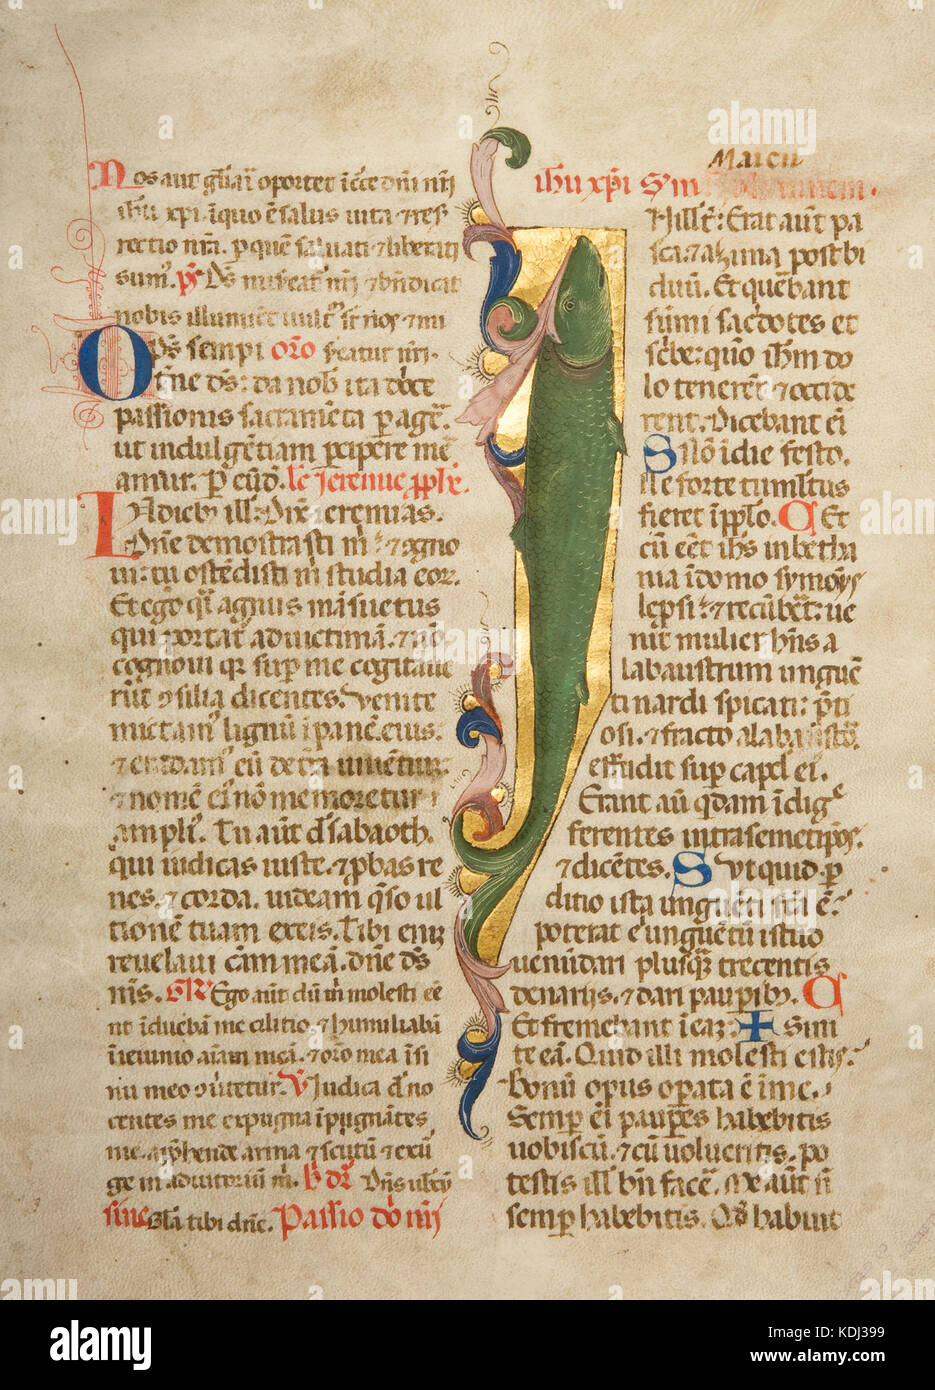 Nos aut gl̄iari oportet ī cr̄ce dn̄i nr̄i
ih̄u xp̄i. ī quo ē salus uita ⁊ res
rectio nr̄a. p̄ quē saluati ⁊ liberati
sumꝰ. p̄s D̄s misereat̄ nr̄i ⁊ bn̄dicat
nobis illumīet uult̄
Op̄s sempi or̄o
t̄ne d̄s: da nob̄ ita dn̄ice
passionis sacramēta pagē
ut indulgētiam pcipere me
amur. p̄ eūd̄. lc̄ Jeremie pph̄e.
In dieb; ill̄: Dix̄ ieremias.
Dn̄e demostrasti m̄ ⁊ cogno
ui: tu ostēdisti m̄ studia eor̄.
Et ego q̄i agnus māsuetus
qui portat̄ ad uictimā. ⁊ nō
cognoui qr̄ sup̄ me cogitaue
rūt ꝯsilia dicentes. Venite
mictamꝰ lignū ī panē eius.
⁊ eradamꝰ eū de t̄ra uiuētiū:
⁊ nomē eiꝰ nō memoretur
ampliꝰ. Tu aut̄ dn̄e sabaoth.
qui iudicas iuste. ⁊ pbas re
nes. ⁊ corda. uideam q̄so ul
tionē tuam ex eis. Tibi eni;
reuelaui cām meā. dn̄e d̄s
m̄s. GR̄ Ego aut̄ dū m̄ molesti eē
nt īduebā me cilitio ⁊ humiliabā
ī ieiunio aīam meā. ⁊ or̄o mea ī si
nu meo ꝯuertetur. V Judica dn̄e no
centes me expugna īpugnātes
me. apphende arma ⁊ scutū ⁊ exur̄
ge in adiutoriū m̄.
sine Gl̄a tibi dn̄e. Passio dn̄i nr̄i
Marcū
ih̄u xp̄i Sm̄
N ill̄ t̄: Erat aūt pa
sca ⁊ azima post bi
duū. Et querebant
sūmi sac̄dotes et
scribe: quō ih̄m do
lo tenerēt ⁊ occide
rent. Dicebant eī
S Nō ī die festo.
Ne forte tumultus
fieret ī pplō. C Et
cū eēt ih̄s in betha
nia ī domo symōis
lepsi: ⁊ recūbēt: ue
nit mulier hn̄s a
labaustrum unguē
ti nardi spicati: p̄ti
osi. ⁊ fracto alabaustō
effudit sup̄ capd̄ eiꝰ.
Erant aū q̄dam īdigꝰ
ferentes intra semetip̄os.
⁊ dicētes. S Vt quid p̄
ditio ista unguēti fc̄a ē?
poterat ē unguētū istuo
uenūdari plusq̄ trecentis
denarijs. ⁊ dari paupib;. C
Et fremebant ī eaz: + Sini
te eā. Quid illi molesti estis?
Bonū opus opata ē ī me.
Semp eī paupes habebitis
uobiscū: ⁊ cū uolueritis. po
testis ill̄ bn̄ facē. Me aūt n̄
semp habebitis. Qd̄ habuit
alamy
KDJ399
www.alamy.com